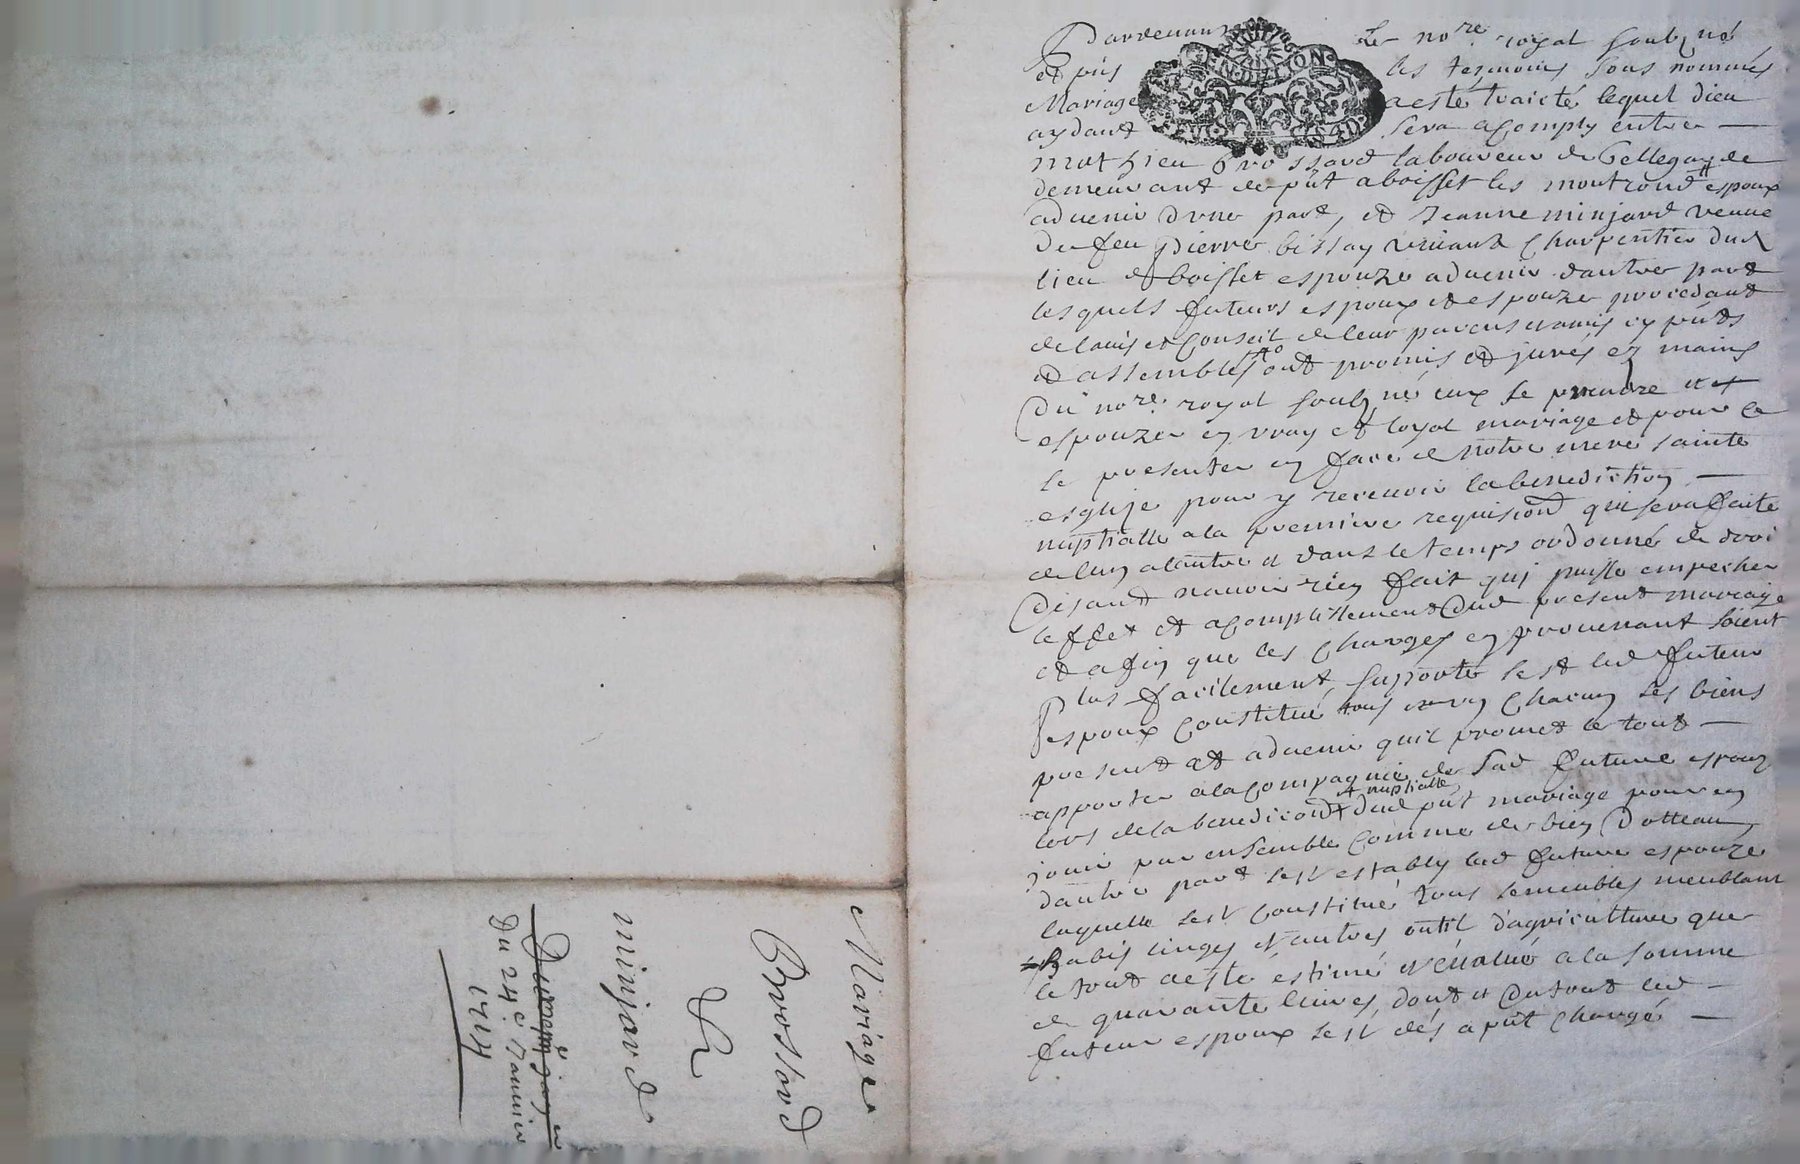 Pardevant le no.re royal soubz.né
et p̃ns les tesmoins sous nommés
Mariage a esté traicté lequel dieu
aydant sera acomply entre
mathieu Brossard laboureur de
demeurant de p̃nt a boisset les montrond espoux
aduenir d'une part, et Jeanne minjard veuue
De feu pierre bissay viuant Charpentier dud
lieu de boisset espouze aduenir d'autre part
lesquels futurs espoux et espouze procedant
de lauis et Conseil de leur parens et amis icy p̃nts
et assemblés ont promis et jurés ez mains
Du no.re royal soubz.né eux se prendre et
espouzer en vray et loyal mariage et pour ce
se presenter en face de nôtre mere sainte
esglize pour y receuoir la benediction
nuptialle a la premiere requision qui sera faite
de lun a lautre et dans le temps ordonné de droi
Disant nauoir rien fait qui puisse empecher
leffet et acomplissement dud present mariage
et afin que les Charges en prouenant soient
Plus facilement suportés sest led futeur
espoux Constitué tous un chacun ses biens
present et aduenir quil promet le tout
apporter a la Compagnie de sad future espouz
lors de la benediction nuptialle dud p̃nt mariage pour en
jouir par ensemble Comme de bien Dotteaux
d'autre part sest estably lad future espouze
laquelle sest Constitué tous se meubles meublant
habis linges et autres outil d'agriculture que
le tout a esté éstimé et éualué a la somme
de quarante liures, dont et du tout led
futeur espoux sest dés a p̃nt Chargé
Mariage
Brossard
&
minjard
Du 24.e Januier
1714